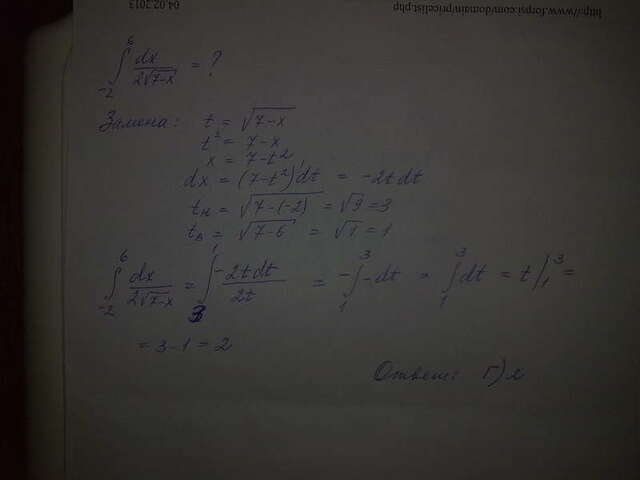 04.02.2013
http://www.forpsi.com/domain/pricelist.php
∫₋₂⁶ dx / 2√7-x = ?
Замена: t = √7-x
t² = 7-x
x = 7-t²
dx = (7-t²)'dt = -2t dt
tн = √7-(-2) = √9 = 3
tв = √7-6 = √1 = 1
∫₋₂⁶ dx / 2√7-x = ∫₃¹ -2t dt / 2t = -∫₁³ -dt = ∫₁³ dt = t |₁³ =
= 3-1 = 2
Ответ: Г) 2